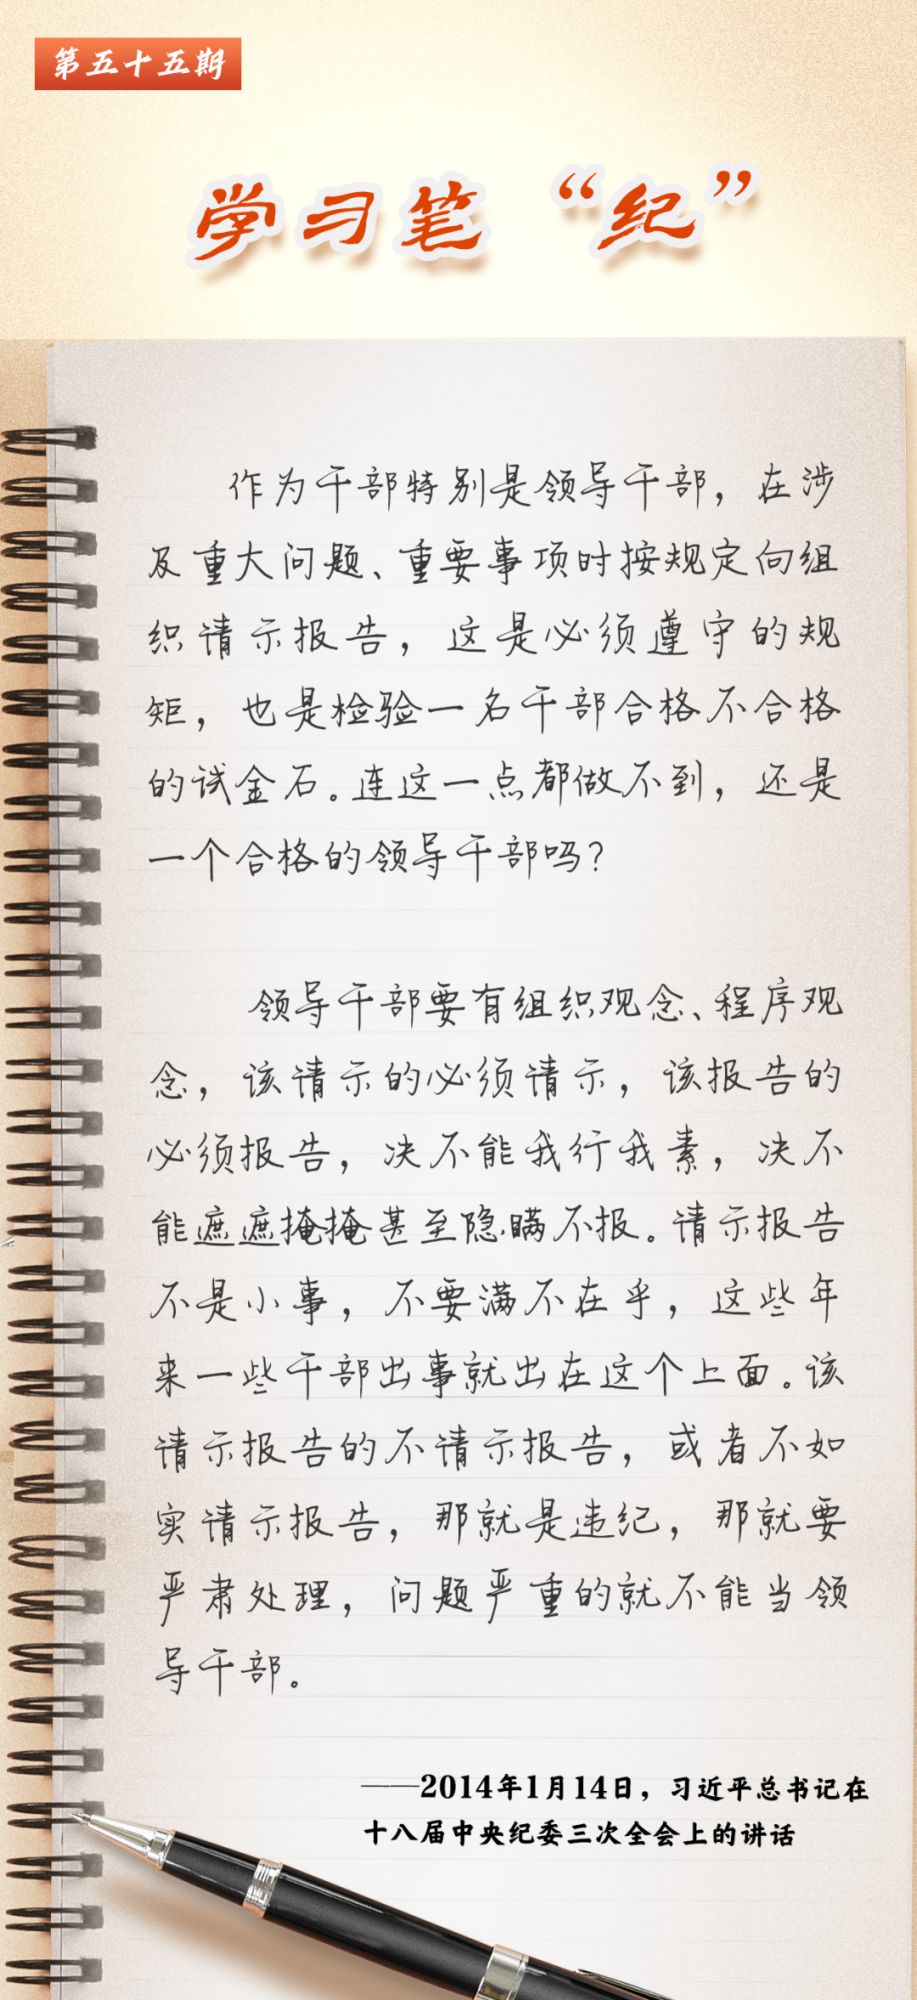 第五十五期
学习笔“纪”
作为干部特别是领导干部，在涉
及重大问题、重要事项时按规定向组
织请示报告，这是必须遵守的规
矩，也是检验一名干部合格不合格
的试金石。连这一点都做不到，还是
一个合格的领导干部吗？
领导干部要有组织观念、程序观
念，该请示的必须请示，该报告的
必须报告，决不能我行我素，决不
能遮遮掩掩甚至隐瞒不报。请示报告
不是小事，不要满不在乎，这些年
来一些干部出事就出在这个上面。该
请示报告的不请示报告，或者不如
实请示报告，那就是违纪，那就要
严肃处理，问题严重的就不能当领
导干部。
——2014年1月14日，习近平总书记在
十八届中央纪委三次全会上的讲话